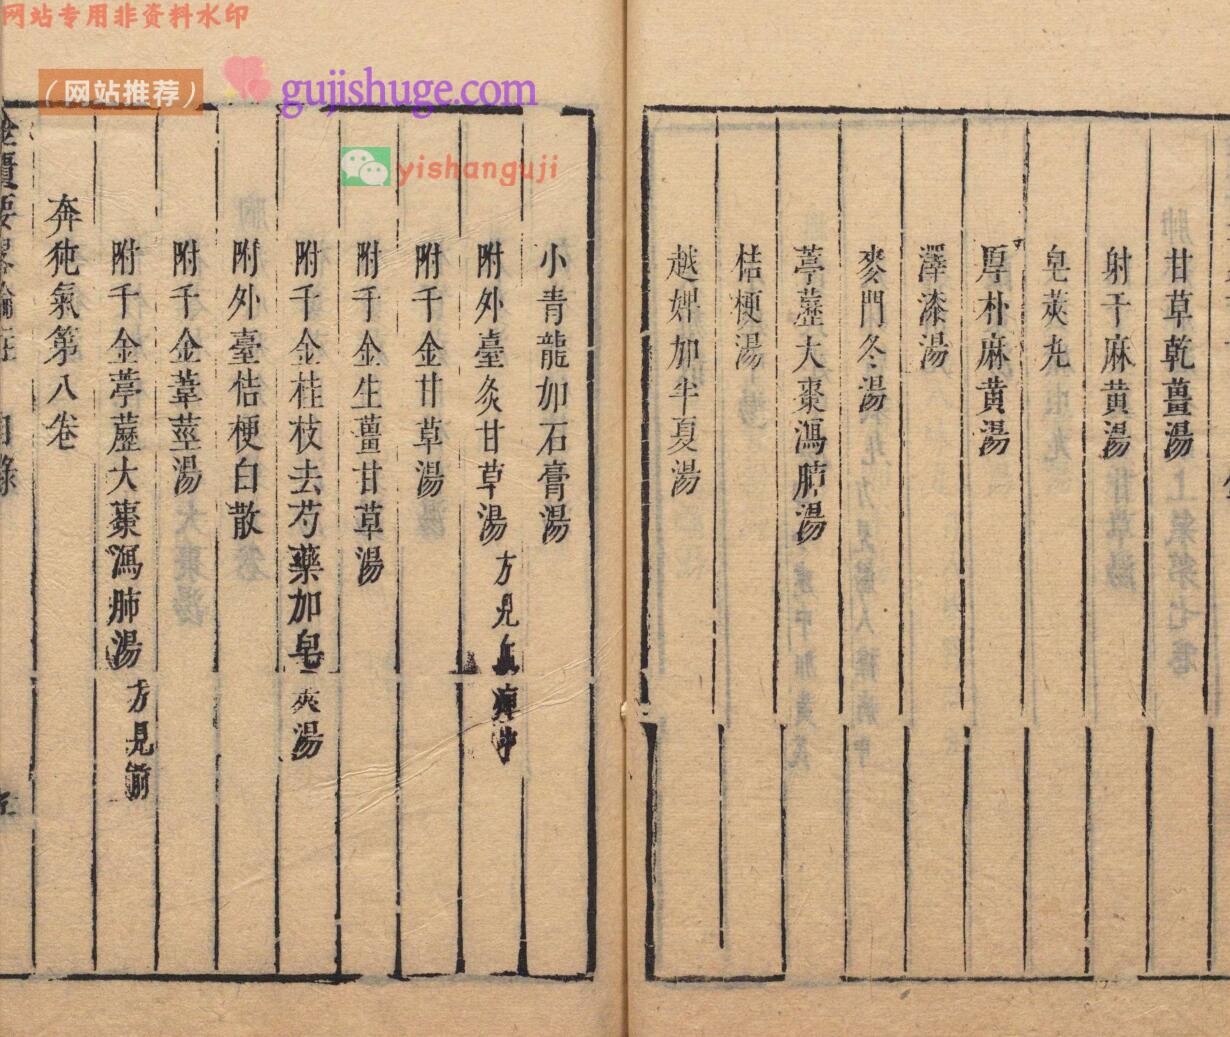 网站专用非资料水印
（网站推荐）
gujishuge.com
yishanguji
甘草乾薑湯
射干麻黄湯
皂莢丸
厚朴麻黄湯
澤漆湯
麥門冬湯
葶藶大棗瀉肺湯
桔梗湯
越婢加半夏湯
小青龍加石膏湯
附外臺炙甘草湯 方見
附千金甘草湯
附千金生薑甘草湯
附千金桂枝去芍藥加皂莢湯
附外臺桔梗白散
附千金葦莖湯
附千金葶藶大棗瀉肺湯 方見前
奔㹠氣第八卷
金匱要畧論註 目錄